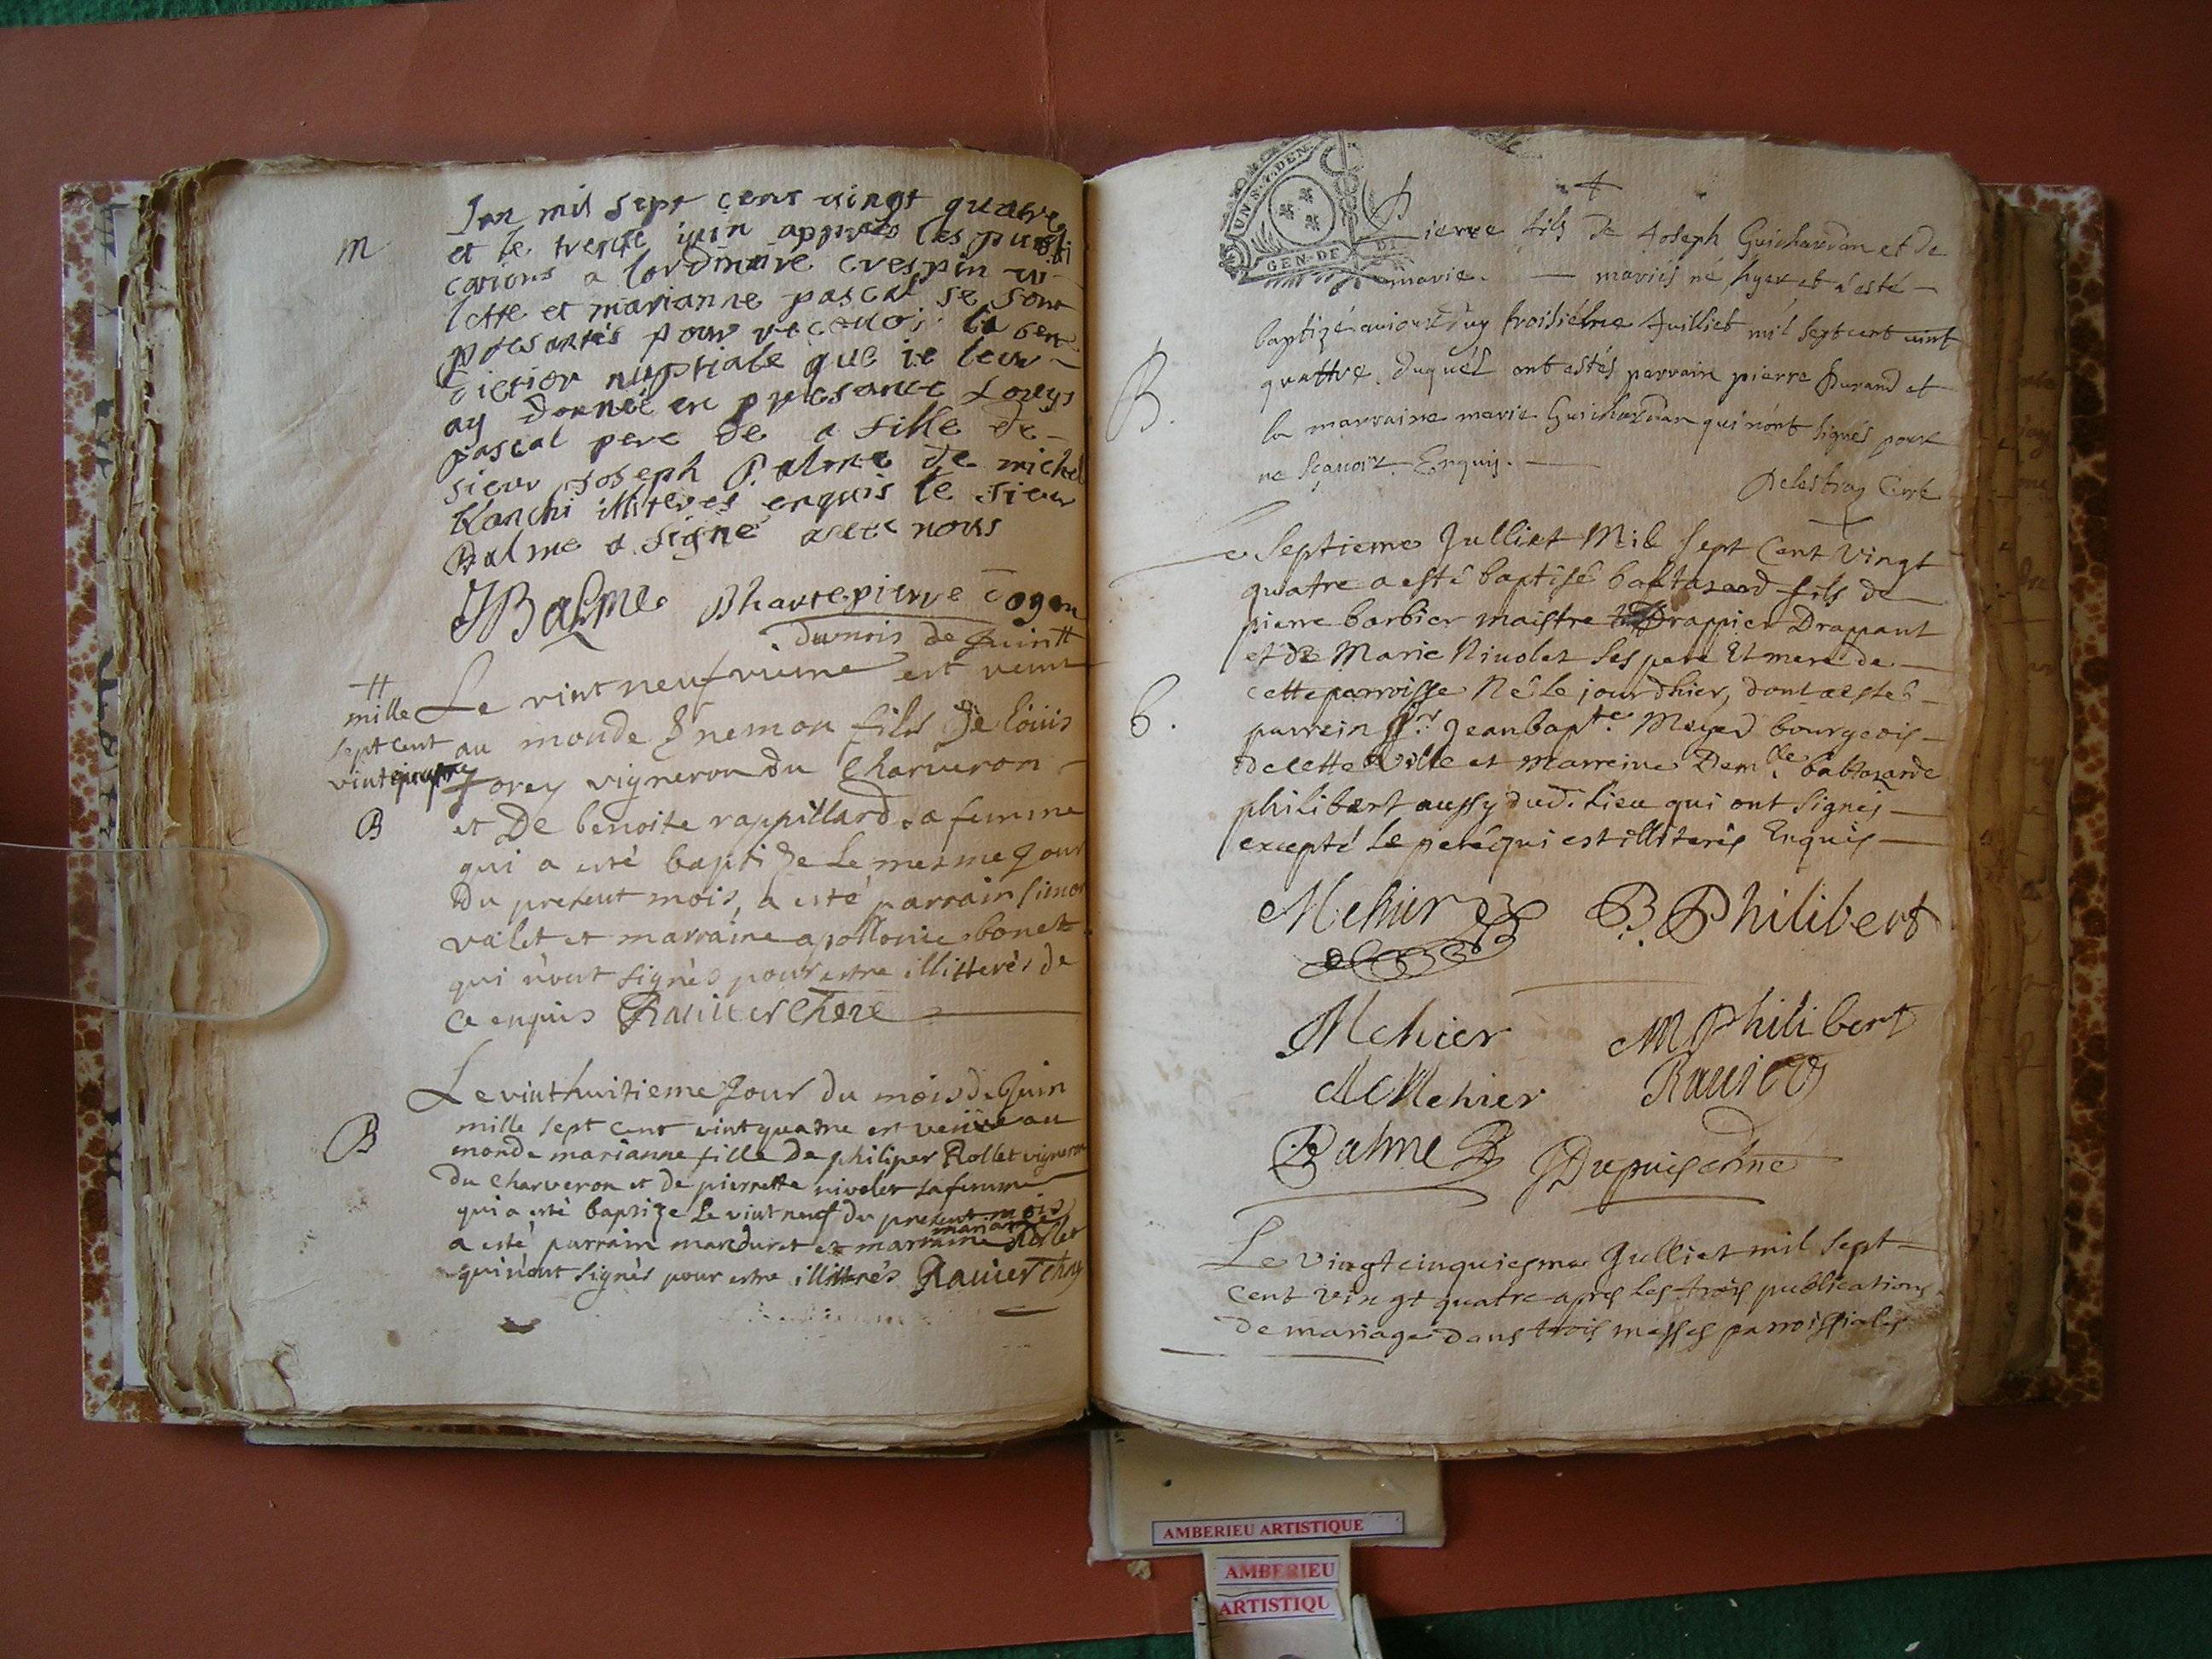 m
Lan mil sept cens vingt quatre
et le trente iuin apprés les publi
cations a lordinaire crespin vi-
lette et marianne pascal se sont
presantés pour recevoir la bene
diction nuptiale que ie leur
ay donnée en presance Louys
pascal pere de la fille de
sieur Joseph Balme de michel
blanchi illiteres enquis le sieur
Balme a signé avec nous
JBalme Bhautepierre doyen
du mois de Juin #
# mille sept cent vint quatre
Le vint neufvieme est venu
au monde Enemon fils de loüis
Jorey vigneron du Charveron
B
et De benoite rappillard sa femme
qui a esté baptizé Le mesme Jour
Du present mois, a esté parrain simon
valet et marraine apollonie bonet
qui n'ont signés pour estre illitterés de
ce enquis Ravier
Le vint huitieme Jour du mois de Juin
mille sept cent vint quatre est venüe au
B
monde marianne fille De philiper Rollet vigneron
du Charveron et de pierrette nivolet sa femme
qui a esté baptize Le vint neuf du present mois
a esté parrain et marraine marianne Rollet
qui n'ont signés pour estre illitterés Ravier
UN S. 4. DEN.
GEN. DE DI
Pierre fils de Joseph Guichardan et de
marie. — mariés né hyer et a esté —
baptizé aujourd'huy troisiéme Juilliet mil sept cent vint
B.
quattre. duquel ont estés parrain pierre Durand et
la marraine marie Guichardan qui n'ont signés pour
ne sçavoir Enquis. —
Delestraz Curé
Le Septieme Julliet Mil Sept Cent Vingt
quatre a esté baptisé baltazard fils de
pierre barbier maistre Drappier Drappant
et de Marie Nivolet ses pere Et mere de —
cette parroisse Né Le jour dhier, dont a esté
b.
parrein Sr. Jean bapte. Meyer bourgeois —
de cette Ville et Marreine Demlle. baltazarde
philibert aussy dud. Lieu qui ont Signéz —
excepté Le pere qui est illiterés Enquis —
Mehier B. Philibert
Mehier M Philibert
M Mehier Ravier
Balme JDupuis
Le Vingtcinquiesme Julliet mil Sept
Cent vingt quatre apres les trois publications
De mariage dans trois messes parroissiales
AMBERIEU ARTISTIQUE
AMBERIEU
ARTISTIQU